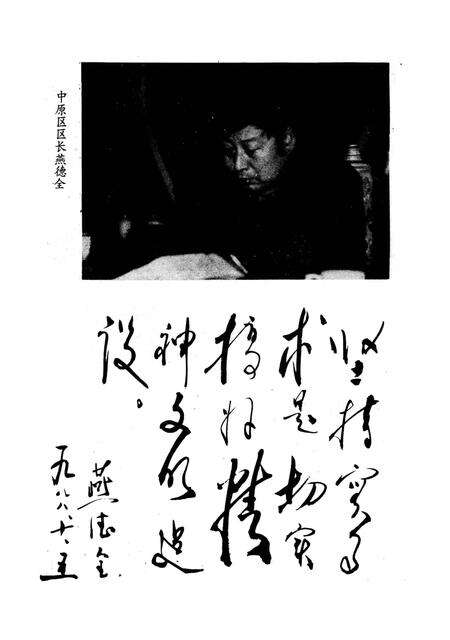 中原区区长燕德全
坚持实事
求是切实
搞好精
神文明建
设。
燕德全
一九八八.十.五